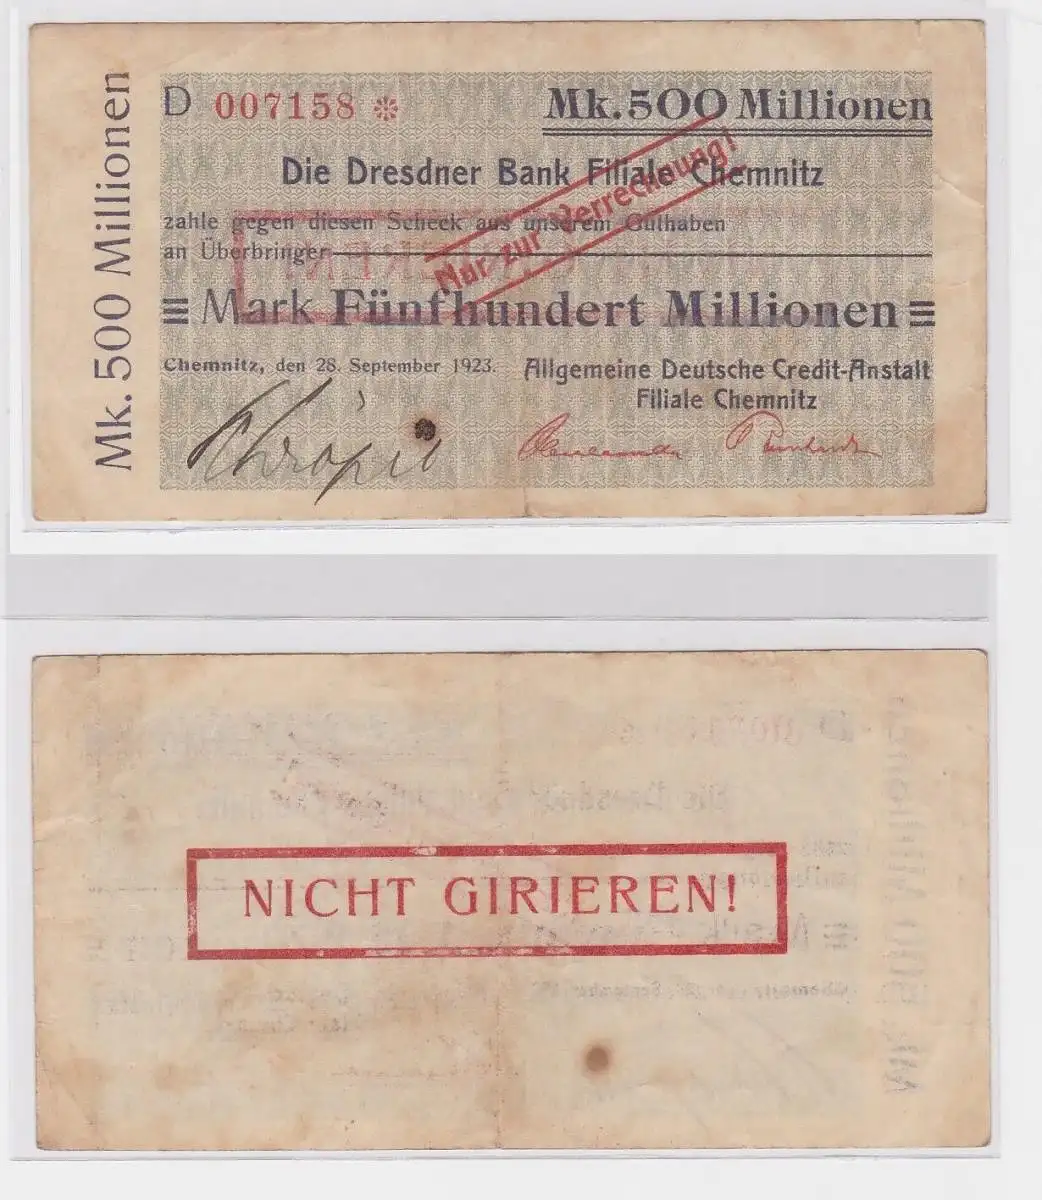 Mk. 500 Millionen
D 007158 *
Mk. 500 Millionen
Die Dresdner Bank Filiale Chemnitz
zahle gegen diesen Scheck aus unserem Guthaben
an Überbringer
Nur zur Verrechnung!
Mark Fünfhundert Millionen
Chemnitz, den 28. September 1923.
Allgemeine Deutsche Credit-Anstalt
Filiale Chemnitz
NICHT GIRIEREN!